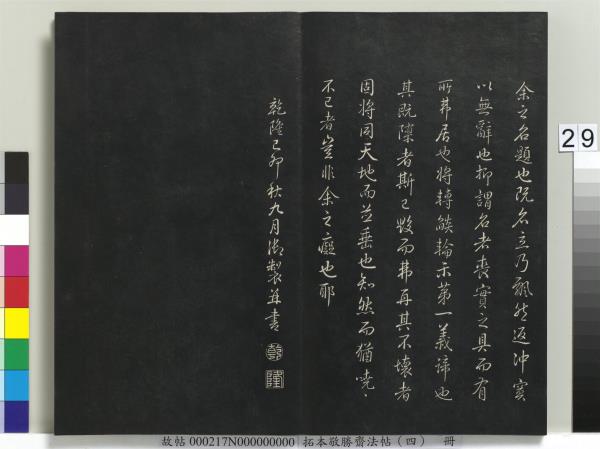 余之名題也既名立乃飄然返沖寞
以無辭也抑謂名者喪實之具而有
所弗居也將轉燄輪示第一義諦也
其既隳者斯已毀而弗再其不壞者
固將同天地而並垂也知然而猶嘵〻
不已者豈非余之癡也耶
乾隆己卯秋九月御製并書
乾
隆
29
故帖 000217N000000000 拓本敬勝齋法帖（四） 冊